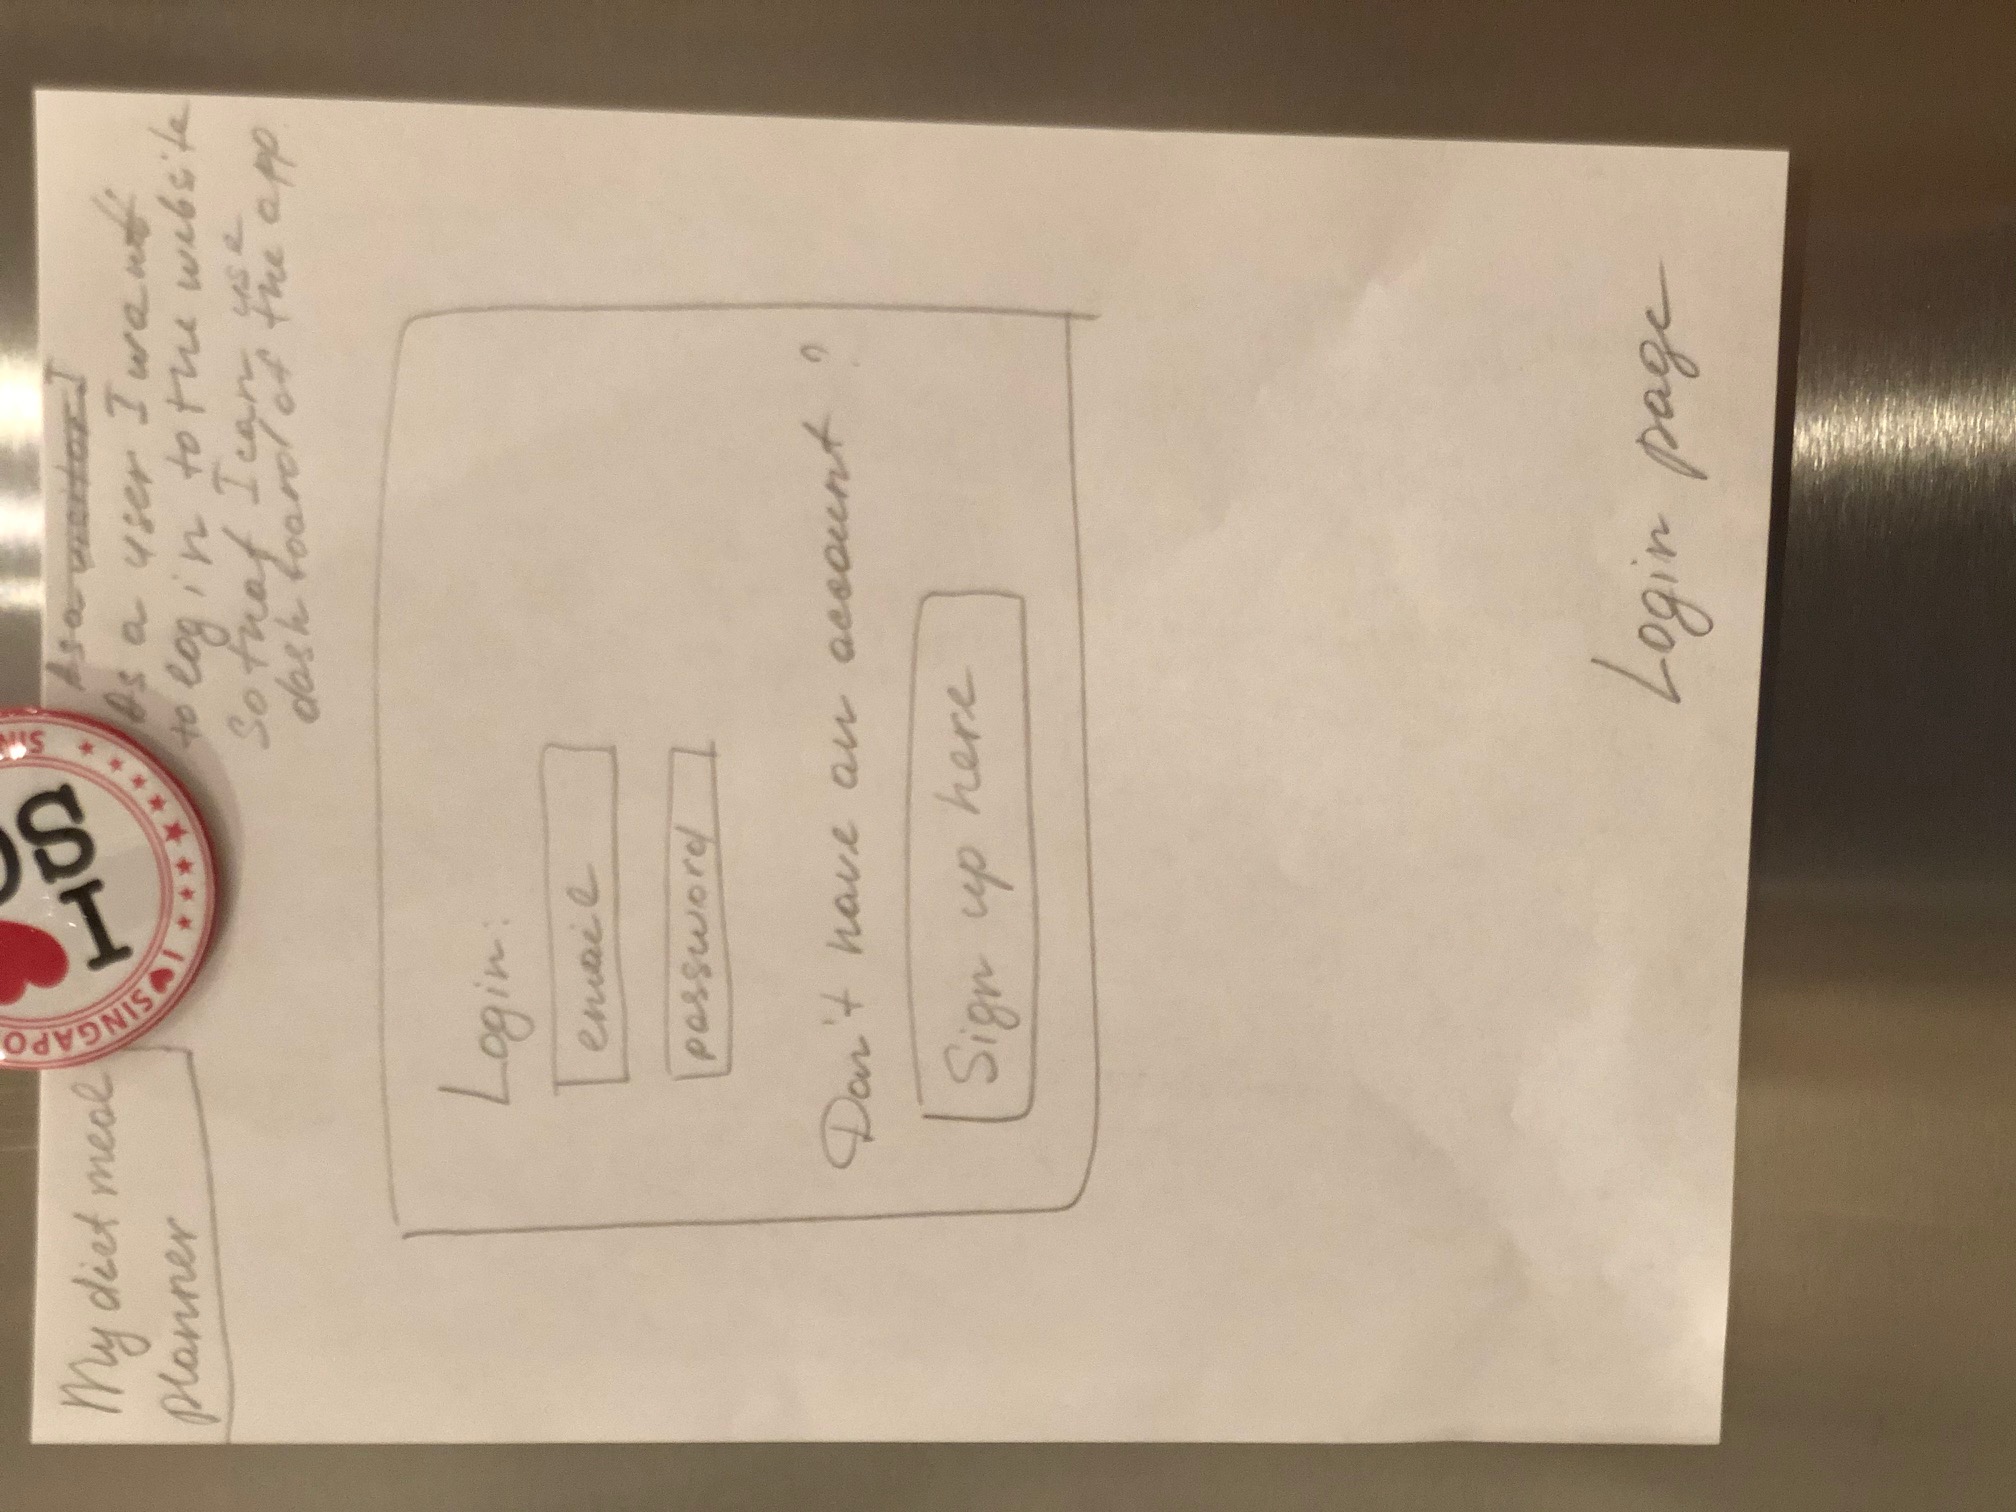 My diet meal
planner
I SINGAPO
SIN
As a visitor I
As a user I want
to log in to the website
So that I can use
dashboard of the app.
Login:
email
password
Don't have an account ?
Sign up here
Login page